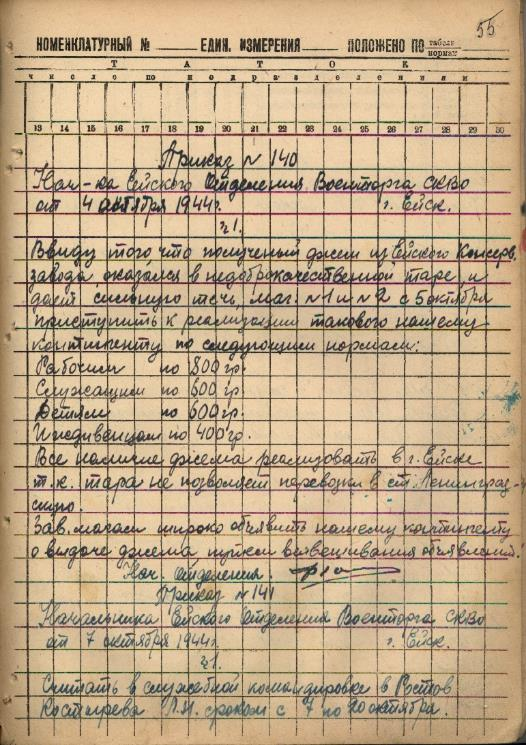 55
НОМЕНКЛАТУРНЫЙ № ЕДИН. ИЗМЕРЕНИЯ ПОЛОЖЕНО ПО табели нормах
Т А Т О К
ч и с л о п о п о д р а з д е л е н и я м
13 14 15 16 17 18 19 20 21 22 23 24 25 26 27 28 29 30
Приказ № 140
Нач-ка Ейского Отделения Военторга СКВО
от 4 октября 1944г. г. Ейск.
§1.
Ввиду того что полученый джем из Ейского Консерв.
завода оказался в недоброкачественной таре и
дает сильную течь, маг. №1 и №2 с 5 октября
приступить к реализации такового нашему
контингенту по следующим нормам:
Рабочим по 800 гр.
Служащим по 600 гр.
Детям по 600 гр.
Иждивенцам по 400 гр.
Все наличие джема реализовать в г. Ейске
т.к. тара не позволяет перевозки в ст. Ленинград-
скую.
Зав. магам широко об'явить нашему контингенту
о выдаче джема путем вывешивания об'явлений.
Нач. Отделения.
Приказ № 141
Начальника Ейского Отделения Военторга СКВО
от 7 октября 1944г. г. Ейск.
§1.
Считать в служебной командировке в Ростов
Костырева сроком с 7 по 20 октября.